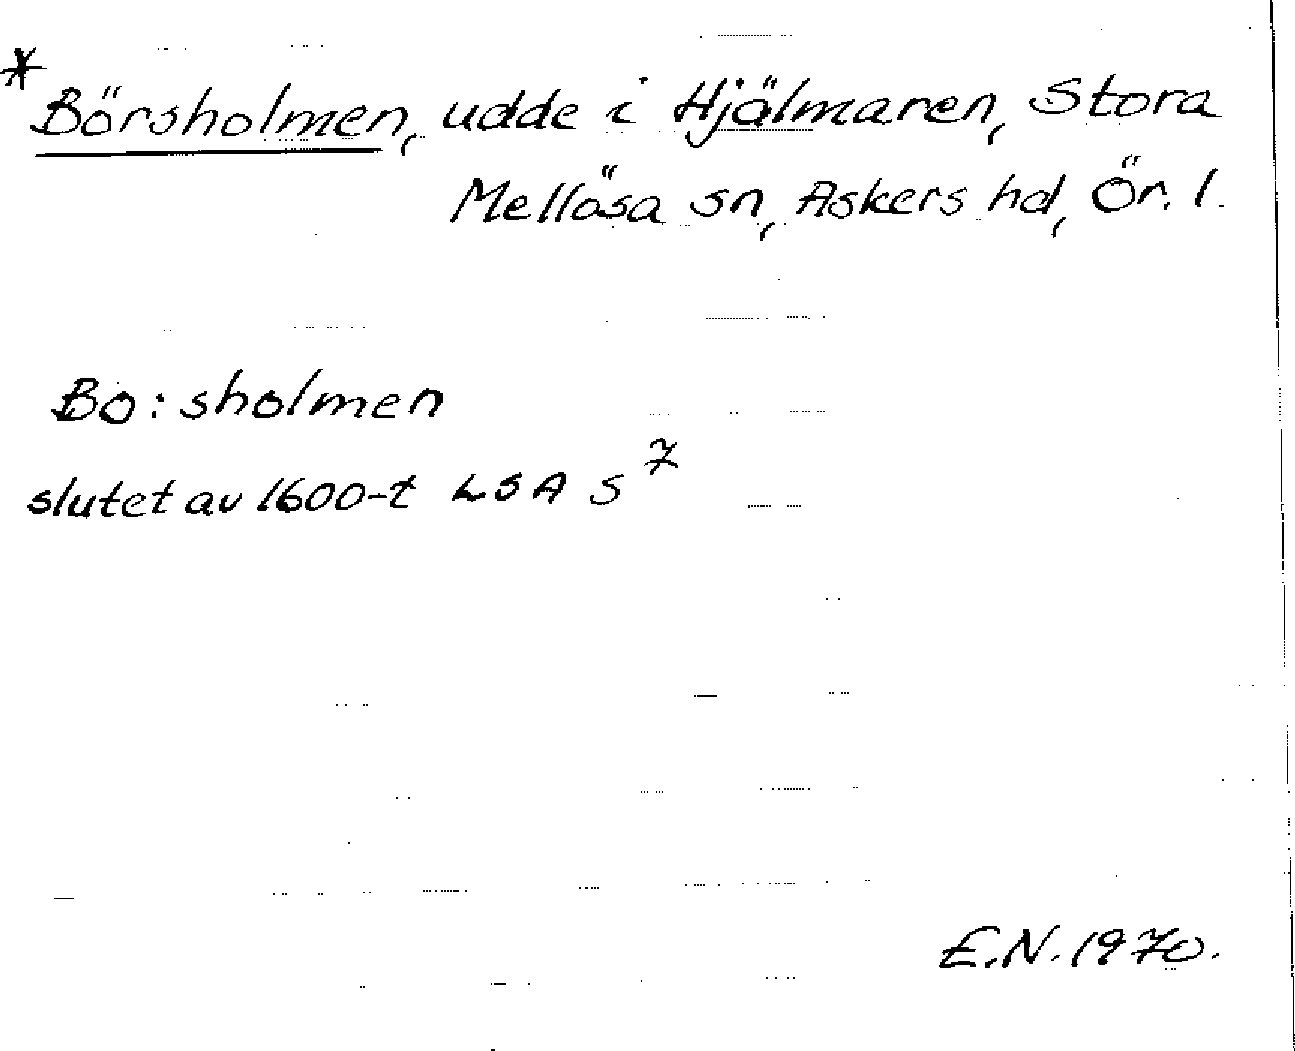 * Börsholmen, udde i Hjälmaren, Stora
Mellösa sn, Askers hd, Ör. l.
Bo:sholmen
slutet av 1600-t LSA S⁷
E.N. 1970.